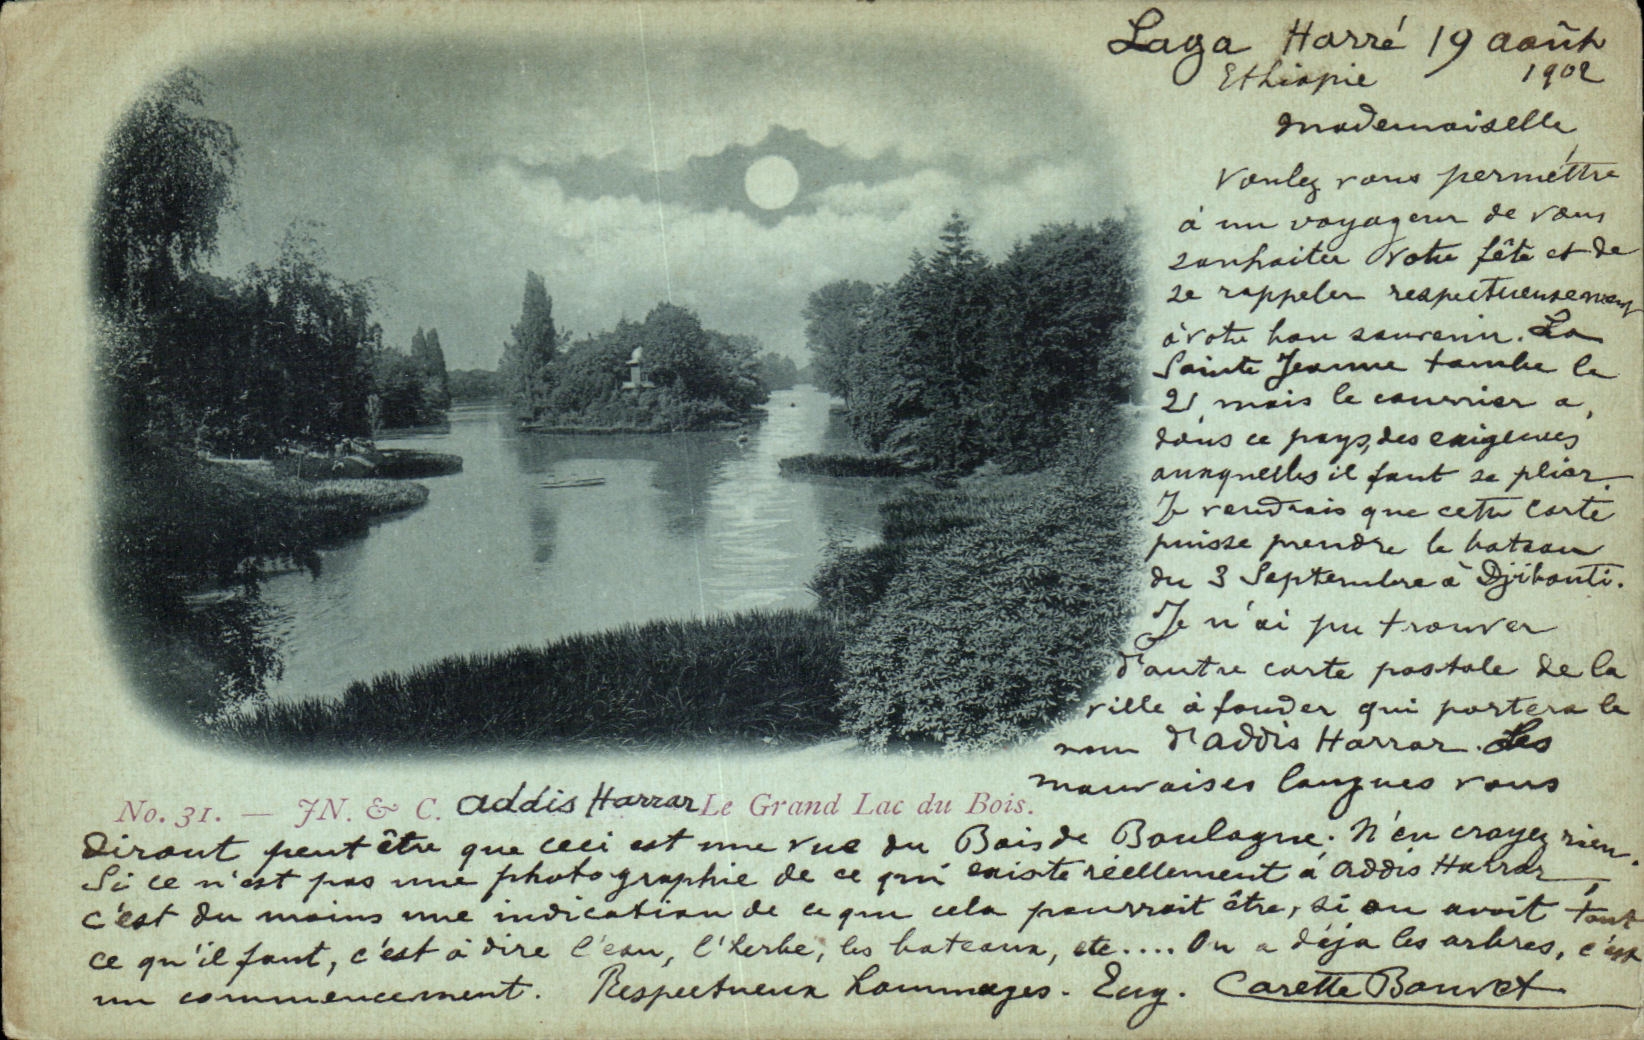 Laga Harré 19 août
Ethiopie 1902
Mademoiselle
Voulez vous permettre
à un voyageur de vous
souhaiter votre fête et de
se rappeler respectueusement
à votre bon souvenir. La
Sainte Jeanne tombe le
21, mais le courrier a,
dans ce pays, des exigences
auxquelles il faut se plier.
Je voudrais que cette carte
puisse prendre le bateau
du 3 Septembre à Djibouti.
Je n'ai pu trouver
d'autre carte postale de la
ville à fonder qui portera le
nom d'Addis Harrar. Les
mauvaises langues vous
No. 31. — JN. & C. Addis Harrar Le Grand Lac du Bois.
diront peut être que ceci est une vue du Bois de Boulogne. N'en croyez rien.
Si ce n'est pas une photographie de ce qui existe réellement à Addis Harrar,
c'est du moins une indication de ce que cela pourrait être, si on avait tout
ce qu'il faut, c'est à dire l'eau, l'herbe, les bateaux, etc.... On a déja les arbres, c'est
un commencement. Respectueux hommages. Eug. Carette Bouvet